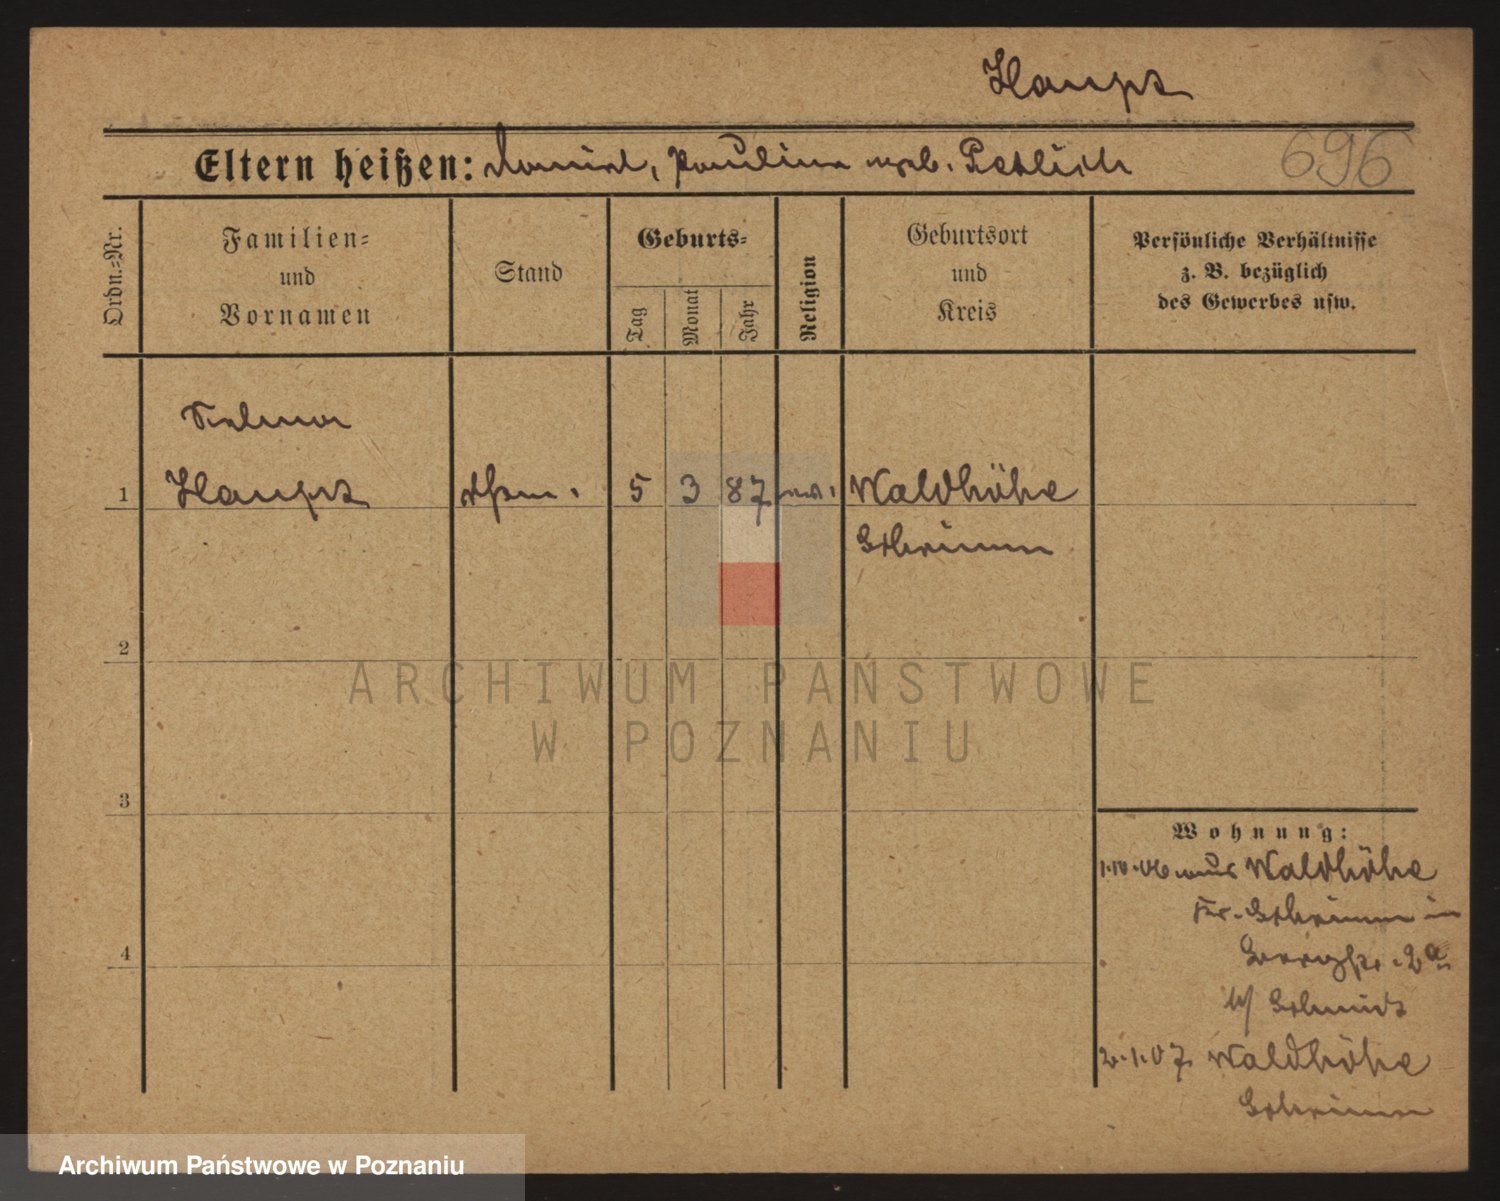 Haupt
Eltern heißen: Daniel, Pauline geb. Petlich
696
Ordn.-Nr.
Familien-
und
Vornamen
Stand
Geburts-
Tag
Monat
Jahr
Religion
Geburtsort
und
Kreis
Persönliche Verhältnisse
z. B. bezüglich
des Gewerbes usw.
Selma
1 Haupt 5 3 87 Waldhöhe
Schrimm
2
ARCHIWUM PAŃSTWOWE
W POZNANIU
3
Wohnung:
1.10.06 aus Waldhöhe
Kr. Schrimm in
4
2a
b/ Schmidt
2.1.07 Waldhöhe
Schrimm
Archiwum Państwowe w Poznaniu